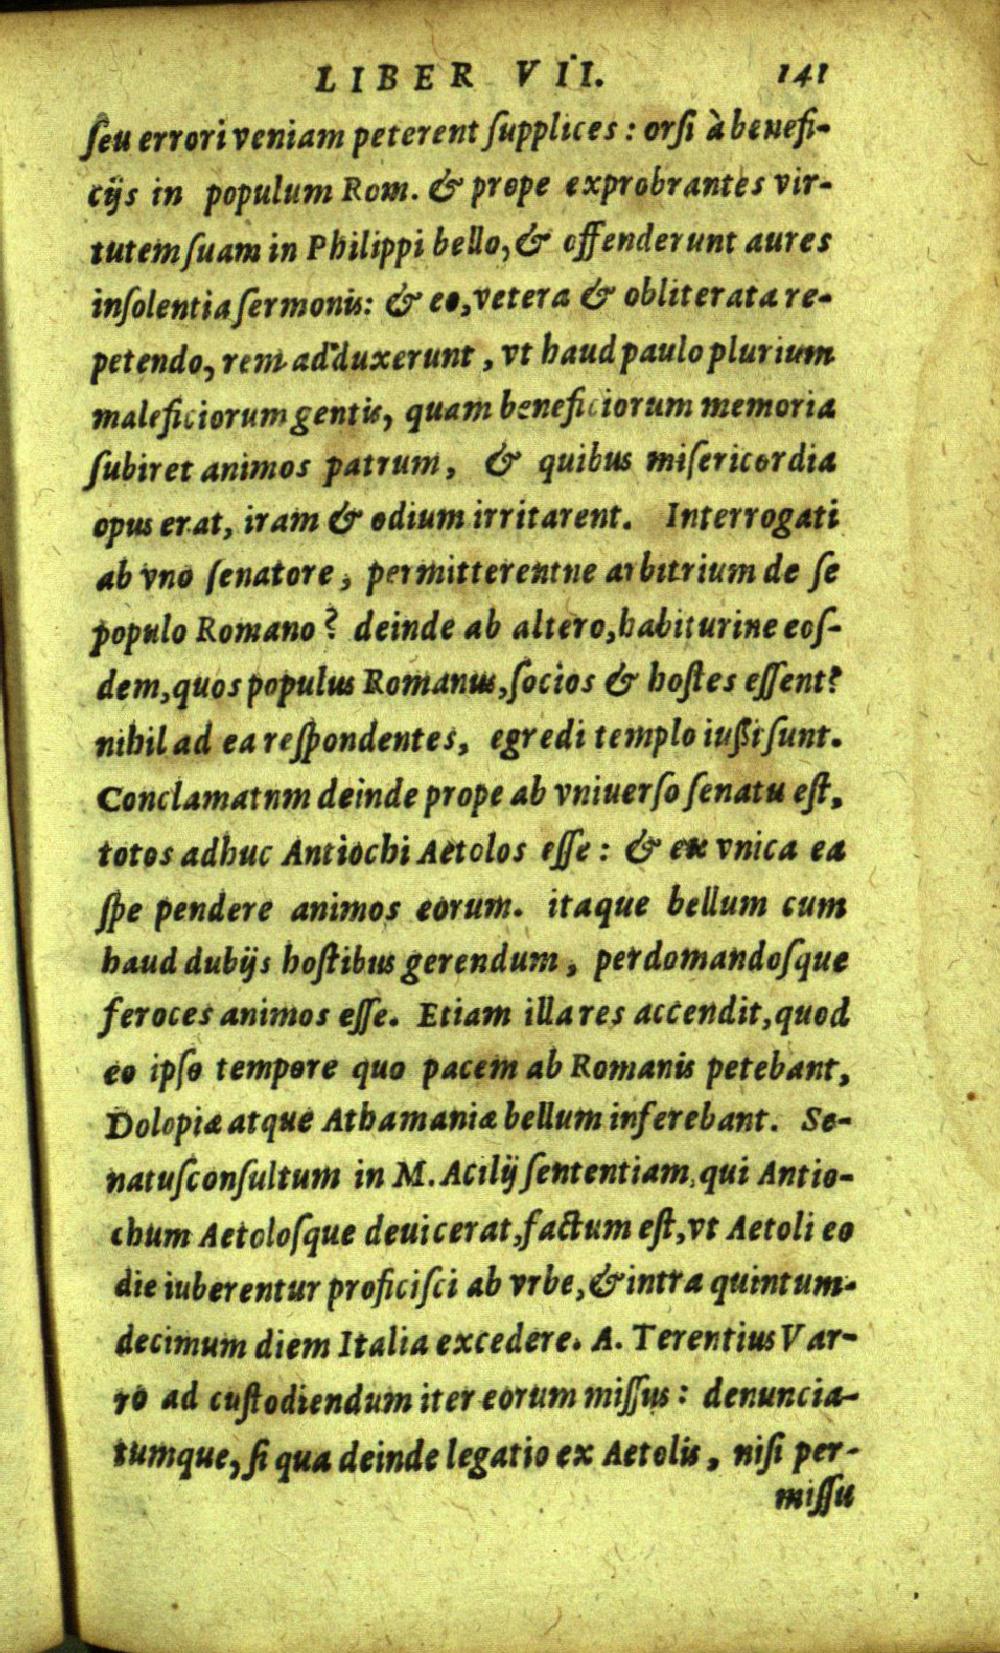 LIBER VII. 141
ſeu errori veniam peterent ſupplices : orſi à benefi-
cijs in populum Rom. & prope exprobrantes vir-
tutem ſuam in Philippi bello, & offenderunt aures
inſolentia ſermonis: & eo, vetera & obliterata re-
petendo, rem adduxerunt , vt haud paulo plurium
maleficiorum gentis, quam beneficiorum memoria
ſubiret animos patrum, & quibus miſericordia
opus erat, iram & odium irritarent. Interrogati
ab vno ſenatore, permitterentne arbitrium de ſe
populo Romano? deinde ab altero, habiturine eoſ-
dem, quos populus Romanus, ſocios & hoſtes eſſent?
nihil ad ea reſpondentes, egredi templo iuſsi ſunt.
Conclamatnm deinde prope ab vniuerſo ſenatu eſt,
totos adhuc Antiochi Aetolos eſſe : & ex vnica ea
ſpe pendere animos eorum. itaque bellum cum
haud dubijs hoſtibus gerendum, perdomandoſque
feroces animos eſſe. Etiam illa res accendit, quod
eo ipſo tempore quo pacem ab Romanis petebant,
Dolopiæ atque Athamaniæ bellum inferebant. Se-
natuſconſultum in M. Acilij ſententiam, qui Antio-
chum Aetoloſque deuicerat, factum eſt, vt Aetoli eo
die iuberentur proficiſci ab vrbe, & intra quintum-
decimum diem Italia excedere. A. Terentius Var-
ro ad cuſtodiendum iter eorum miſſus : denuncia-
tumque, ſi qua deinde legatio ex Aetolis, niſi per-
miſſu